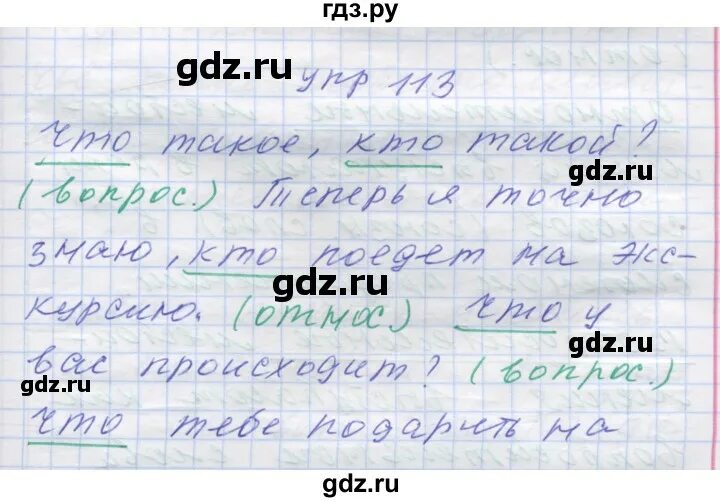 гдз.ру
gdz.ru
упр 113
gdz.ru
Что такое, кто такой?
gdz.ru
(вопрос.) Теперь я точно
gdz.ru
знаю, кто поедет на экс-
gdz.ru
курсию. (относ.) Что у
gdz.ru
вас происходит? (вопрос.)
gdz.ru
Что тебе подарить на
gdz.ru
gdz.ru